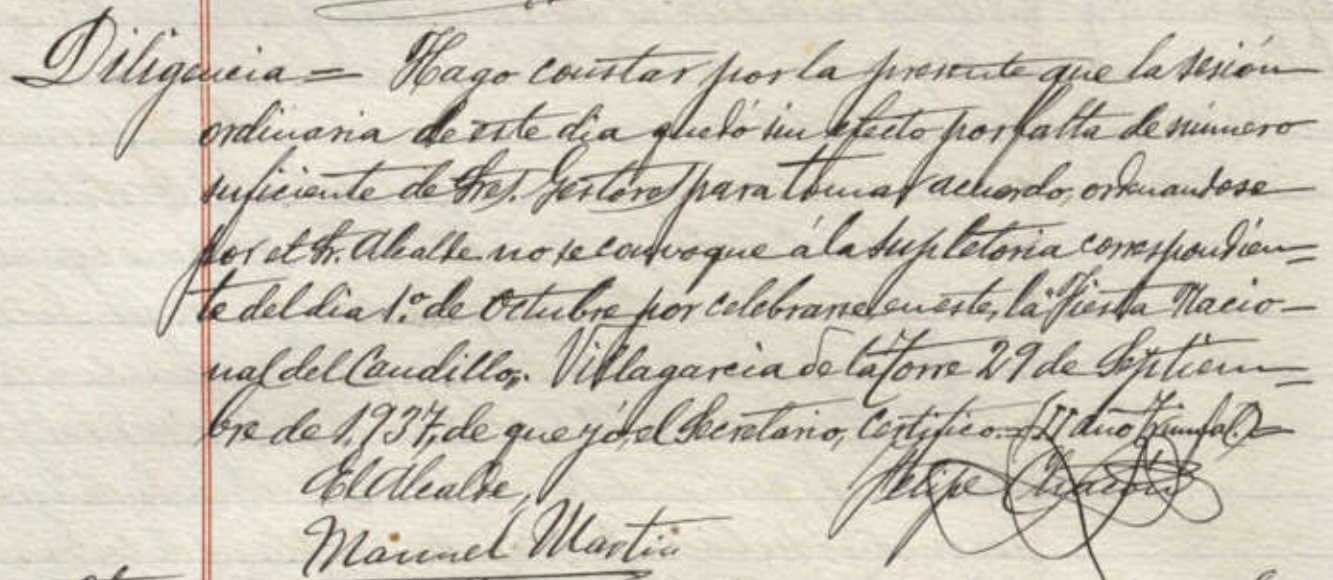 Diligencia = Hago constar por la presente que la sesión
ordinaria de este dia quedó sin efecto por falta de número
suficiente de Sres. Gestores para tomar acuerdo, ordenandose
por el Sr. Alcalde no se convoque á la supletoria correspondien=
te del dia 1º de Octubre por celebrarse en este, la Fiesta Nacio-
nal del Caudillo. Villagarcia de la Torre 29 de Septiem=
bre de 1,937, de que yó, el Secretario, certifico.= (II año Triunfal).=
El Alcalde,
Felipe
Manuel Martin